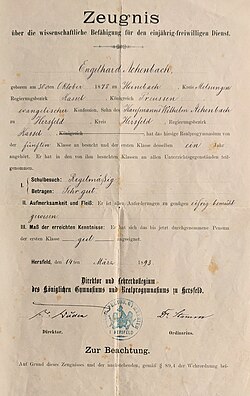 Zeugnis
über die wissenschaftliche Befähigung für den einjährig-freiwilligen Dienst.
Engelhard Achenbach,
geboren am 30ten Oktober 1875 zu Kreis Melsungen
Regierungsbezirk Kassel Königreich Preussen
evangelische Konfession, Sohn des Kaufmanns Wilhelm Achenbach
zu Hersfeld Kreis Hersfeld Regierungsbezirk
Kassel Königreich hat das hiesige Realprogymnasium von
der fünften Klasse an besucht und der ersten Klasse desselben ein Jahr
angehört. Er hat in den von ihm besuchten Klassen an allen Unterrichtsgegenständen teil-
genommen.
I. Schulbesuch: Regelmäßig
Betragen: Sehr gut
II. Aufmerksamkeit und Fleiß: Er ist allen Anforderungen zu genügen eifrig bemüht
gewesen
III. Maß der erreichten Kenntnisse: Er hat sich das bis jetzt durchgenommene Pensum
der ersten Klasse gut angeeignet.
Hersfeld, den 14ten März 1893.
Direktor und Lehrerkollegium
des Königlichen Gymnasiums und Realprogymnasiums zu Hersfeld.
Direktor. Ordinarius.
HERSFELD
Zur Beachtung.
Auf Grund dieses Zeugnisses und der nachstehenden, gemäß § 89,4 der Wehrordnung bei-